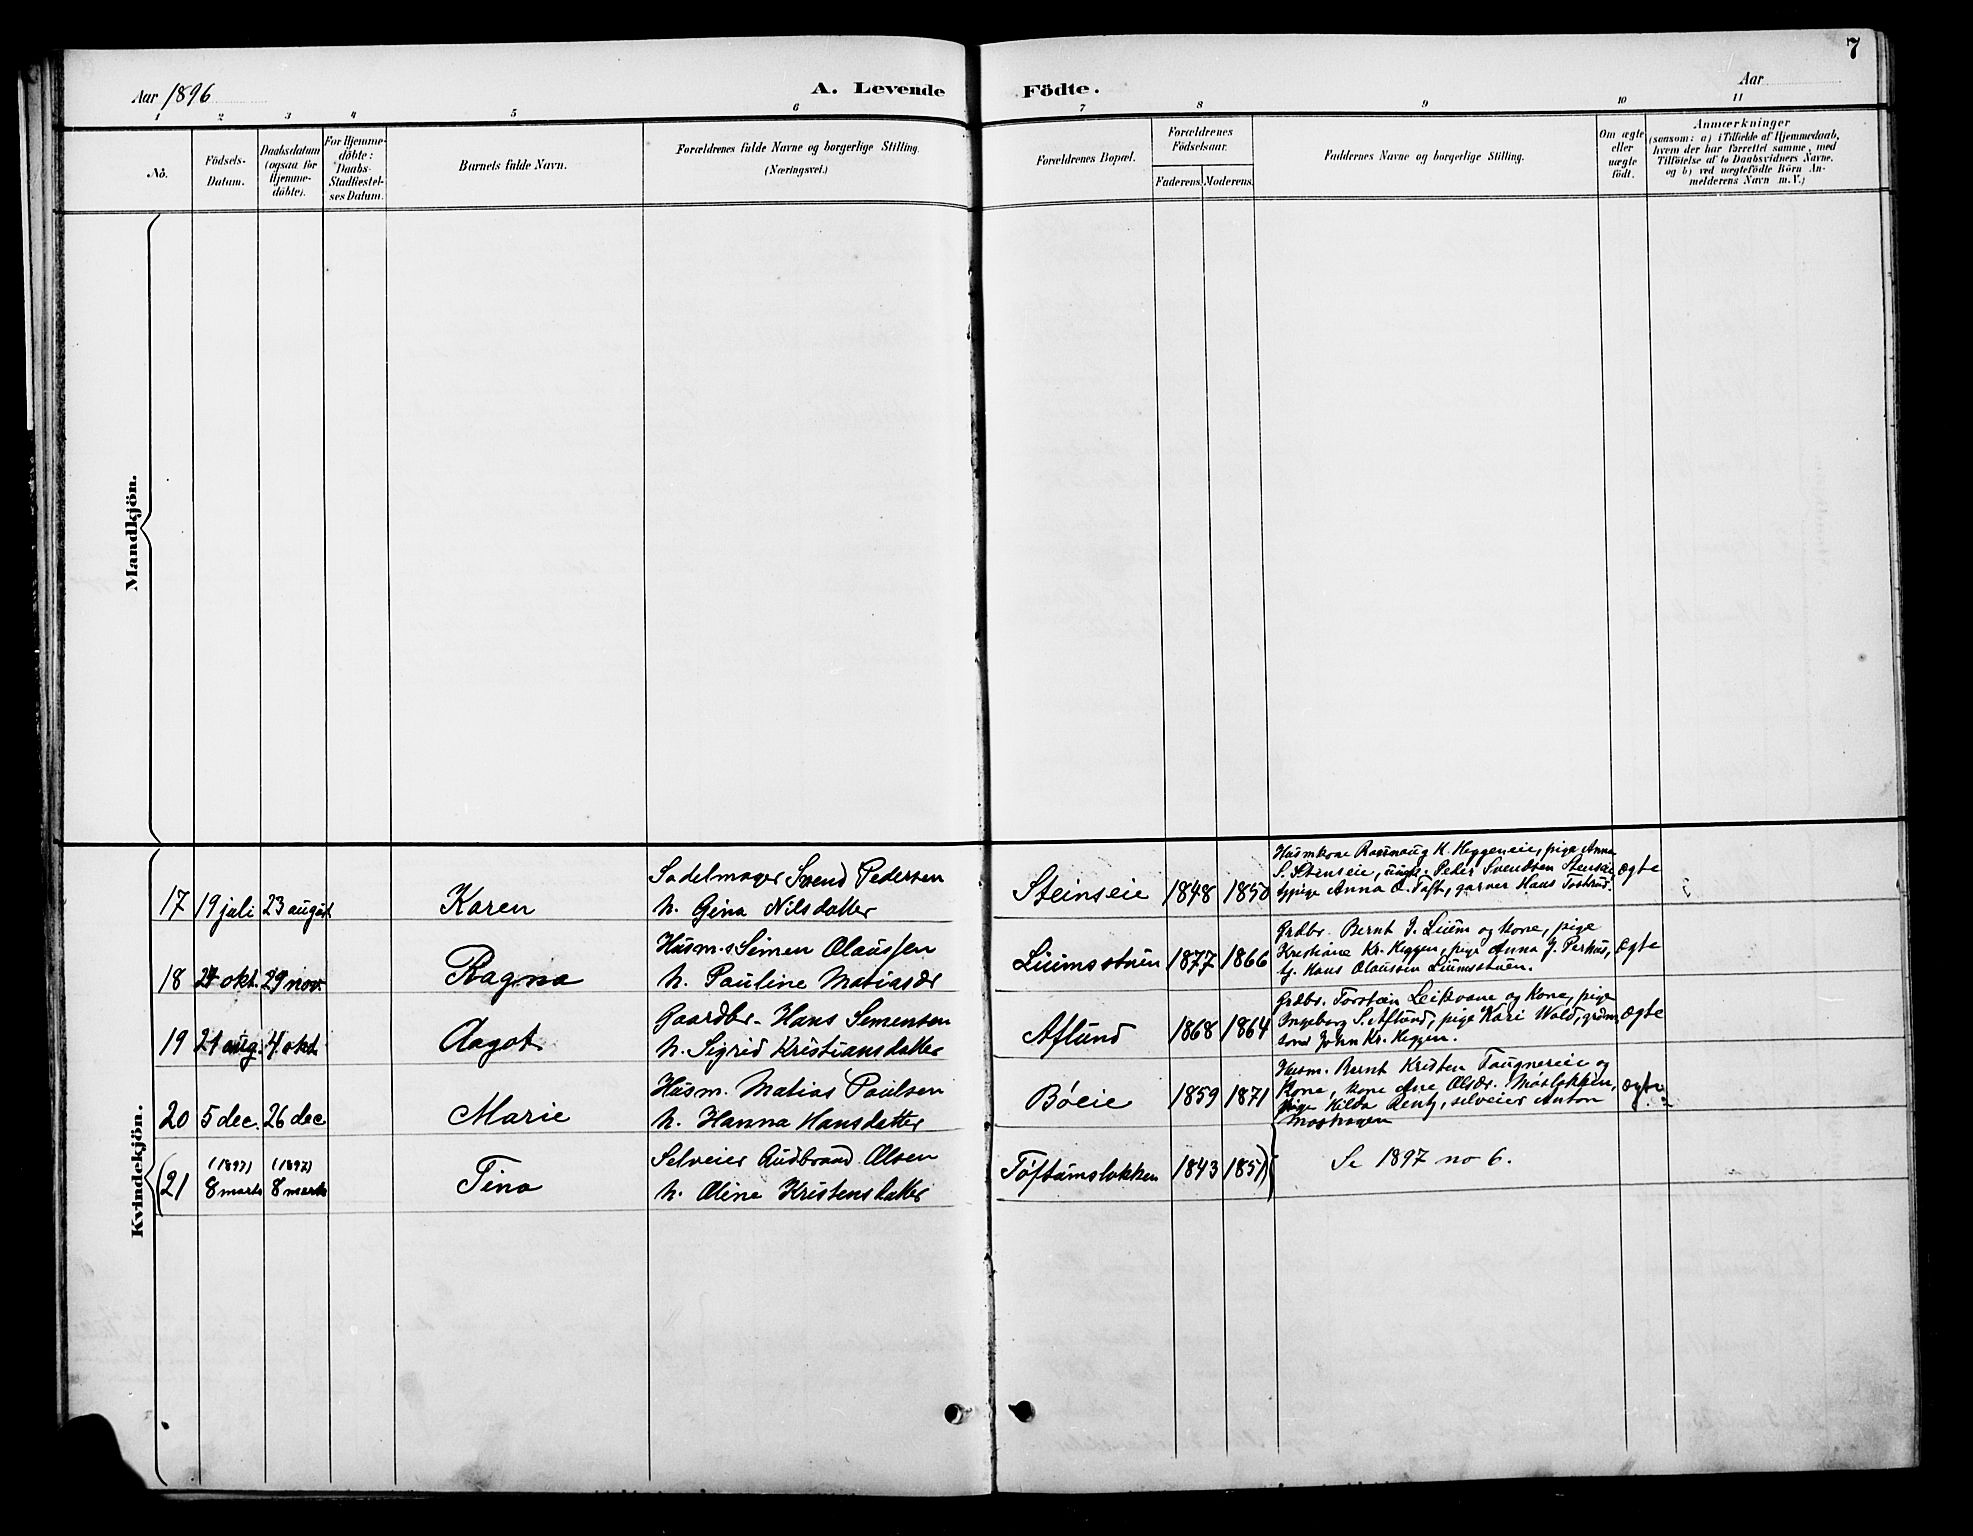 7
Aar 1896
A. Levende Födte.
Aar
1 2 3 4 5 6 7 8 9 10 11
No.
Födsels-
Datum.
Daabsdatum
(ogsaa for
Hjemme-
döbte).
For Hjemme-
döbte:
Daabs-
Stadfæstel-
ses Datum.
Barnets fulde Navn.
Forældrenes fulde Navne og borgerlige Stilling.
(Næringsvei.)
Forældrenes Bopæl.
Forældrenes
Födselsaar.
Faderens. Moderens.
Faddernes Navne og borgerlige Stilling.
Om ægte
eller
uægte
födt.
Anmærkninger
(saasom: a) i Tilfælde af Hjemmedaab,
hvem der har forrettet samme, med
Tilföielse af to Daabsvidners Navne.
og b) ved uægtefödte Börn An-
melderens Navn m. V.)
Mandkjön.
Kvindekjön.
17 19 juli 23 august Karen
Sadelmager Svend Pedersen
h. Gina Nilsdatter
Steinseie 1848 1850
Husmkone Rannaug H. Heggeneie, pige Anna
S. Stenseie, ungk. Peder Svendsen Stenseie
pige Anna O. Toft, garver Hans Tostrud.
ægte
18 24 okt. 29 nov. Ragna
Husm.s Simen Olaussen
h. Pauline Matiasdr
Liumsstuen 1877 1866
Grdbr. Bernt J. Lium og kone, pige
Kristiane Kr. Heggen, pige Anna J. Perhus,
tj. Hans Olaussen Liumsstuen.
ægte
19 21 aug. 4 okt. Aagot
Gaardbr. Hans Simensen
h. Sigrid Kristiansdatter
Aflund 1868 1864
Grdbr. Torstein Leikvane og kone, pige
Ingeborg S. Aflund, pige Kari Wold, grdm.
sønd John Kr. Heggen.
ægte
20 5 dec. 26 dec Marie
Husm. Matias Paulsen
h. Hanna Hansdatter
Bøeie 1859 1871
Husm. Bernt Kristen Faugnereie og
kone, kone Ane Olsdr. Moslokken,
pige Hilda Bentz, selveier Anton
Moshagen
ægte
(21 (1897) 8 marts (1897) 8 marts Tina
Selveier Gudbrand Olsen
h. Oline Kristensdatter
Toftumslokken 1843 1851)
Se 1897 no 6.